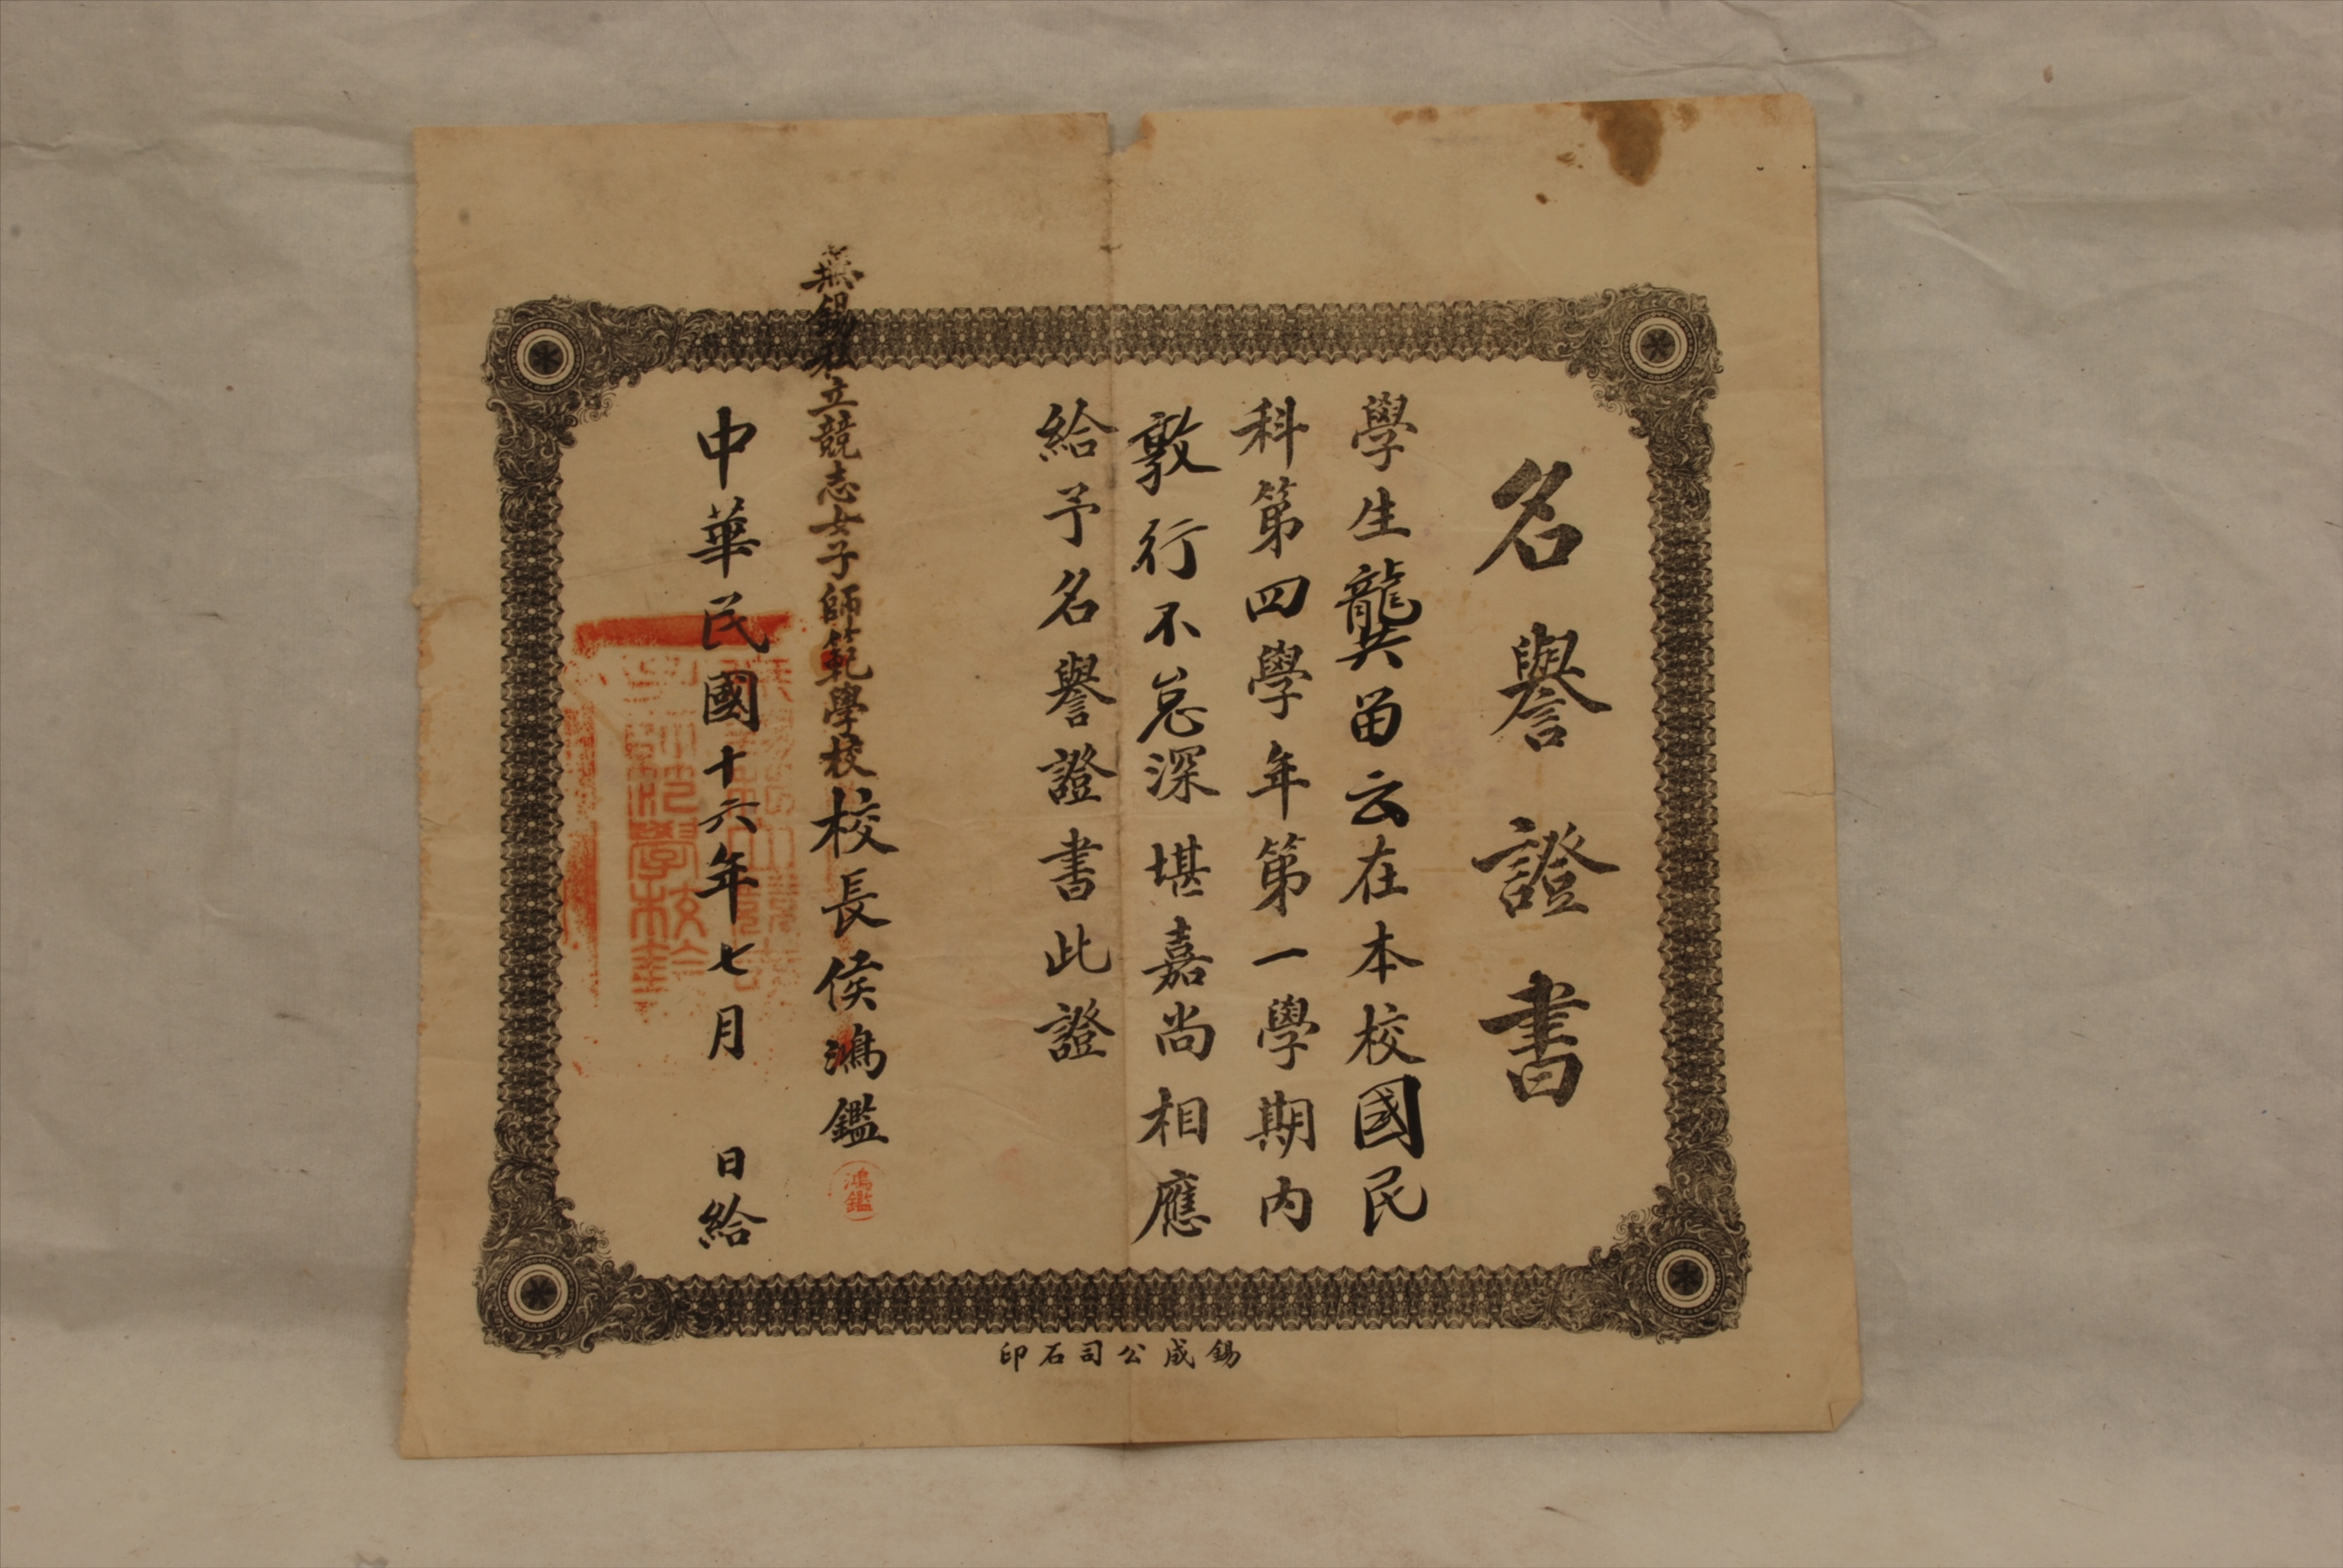 名譽證書
學生龔留云在本校國民
科第四學年第一學期内
敦行不怠深堪嘉尚相應
給予名譽證書此證
無錫私立競志女子師範學校校長侯鴻鑑
鴻鑑
中華民國十六年七月 日給
錫成公司石印